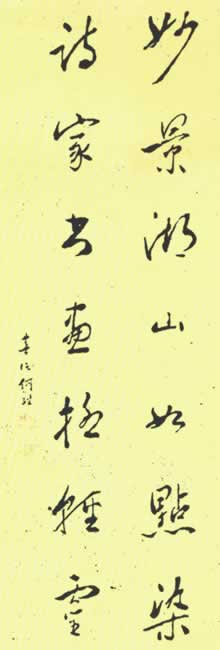 妙景湖山如點染
詩家書畫極輕靈